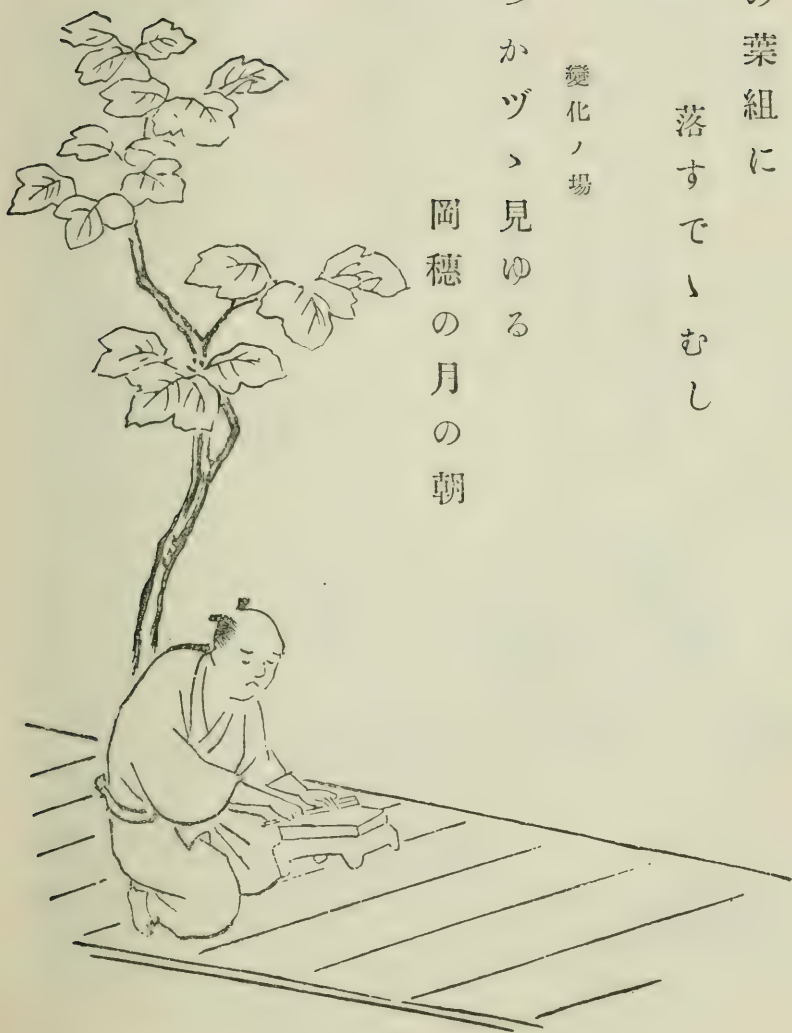 の葉組に
落すでゝむし
變化ノ場
つかヅゝ見ゆる
岡穂の月の朝